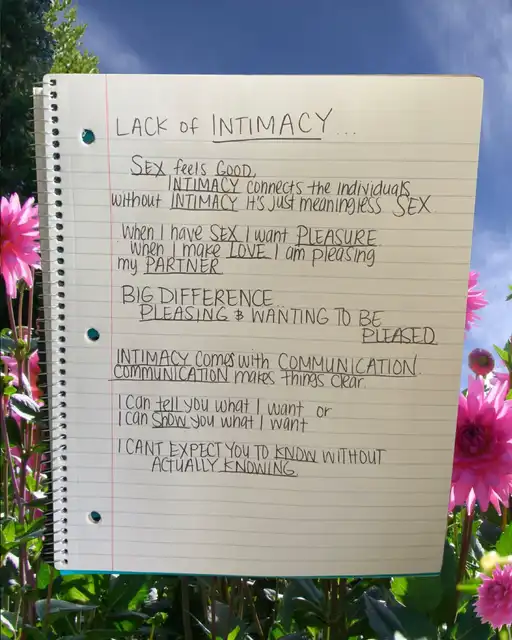 LACK of INTIMACY...
SEX feels GOOD.
INTIMACY connects the individuals
without INTIMACY it's just meaningless SEX.
When I have SEX I want PLEASURE
When I make LOVE I am pleasing
my PARTNER
BIG DIFFERENCE...
PLEASING & WANTING TO BE
PLEASED
INTIMACY comes with COMMUNICATION.
COMMUNICATION makes things clear.
I can tell you what I want or
I can SHOW you what I want
I CANT EXPECT YOU TO KNOW WITHOUT
ACTUALLY KNOWING